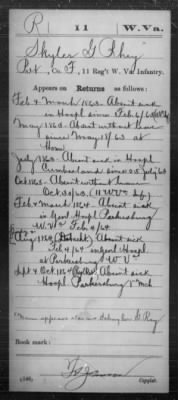 R | 11 | W. Va.
Skyler G. Rhey
Pvt, Co. F, 11 Reg't W. Va. Infantry.
Appears on Returns as follows:
Feb & March 1863. Absent sick
in Hospl since Feb. 6/63
May 1863 Absent without leave
since May 15/63 at
Home
July 1863. Absent sick in Hospl
Cumberland since 25 July 63
Oct 1863. Absent without leave
Oct 20/63.
Feb & March 1864 - Absent sick
in Genl Hospl Parkersburg
W Va Feb 4/64
Aug 1864 Absent sick
Feb 4/64 in genl Hospl
at Parkersburg W Va
Sept & Oct 1864 Absent sick
Hospl Parkersburg
Name appears also as G Ray
Book mark:
(546)
Copyist.